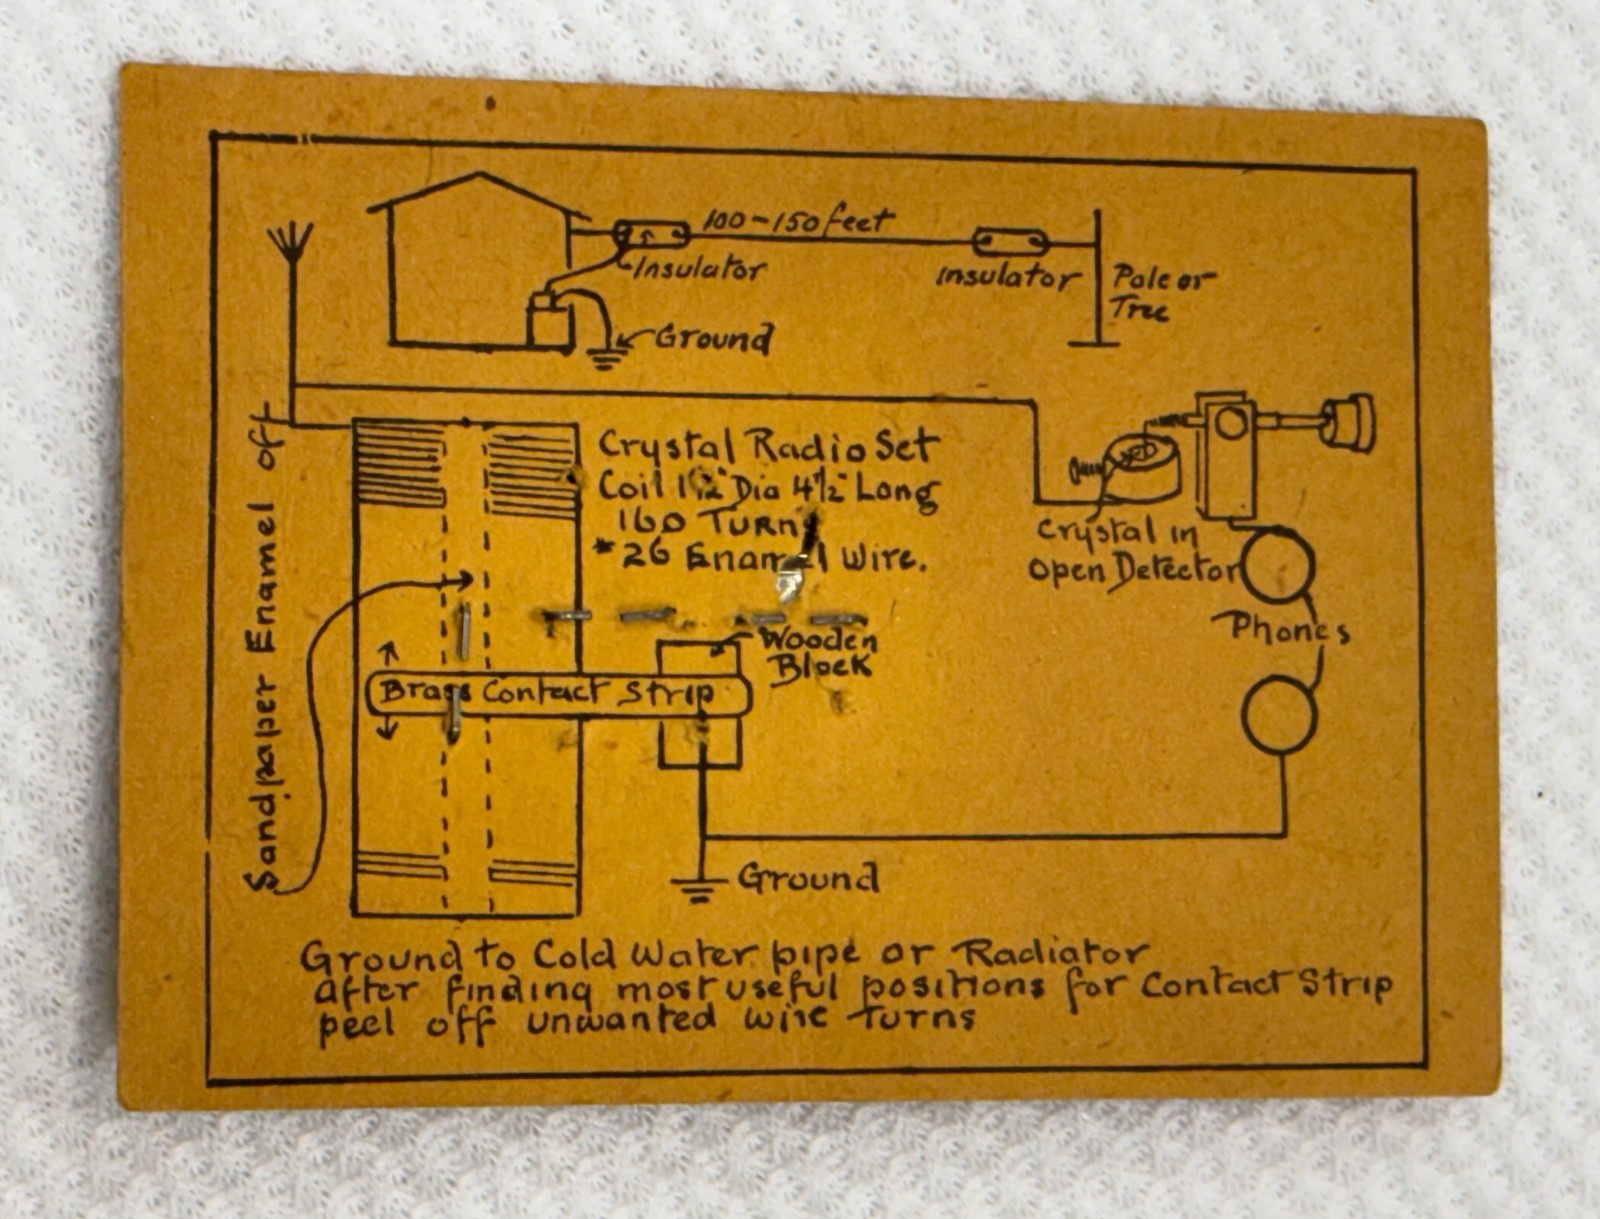 100-150 feet
Insulator
Insulator
Pole or
Tree
Ground
Sandpaper Enamel off
Crystal Radio Set
Coil 1½" Dia 4½" Long
160 Turns
#26 Enamel Wire.
Crystal in
Open Detector
Phones
Wooden
Block
Brass Contact Strip
Ground
Ground to Cold Water pipe or Radiator
after finding most useful positions for Contact Strip
peel off unwanted wire turns